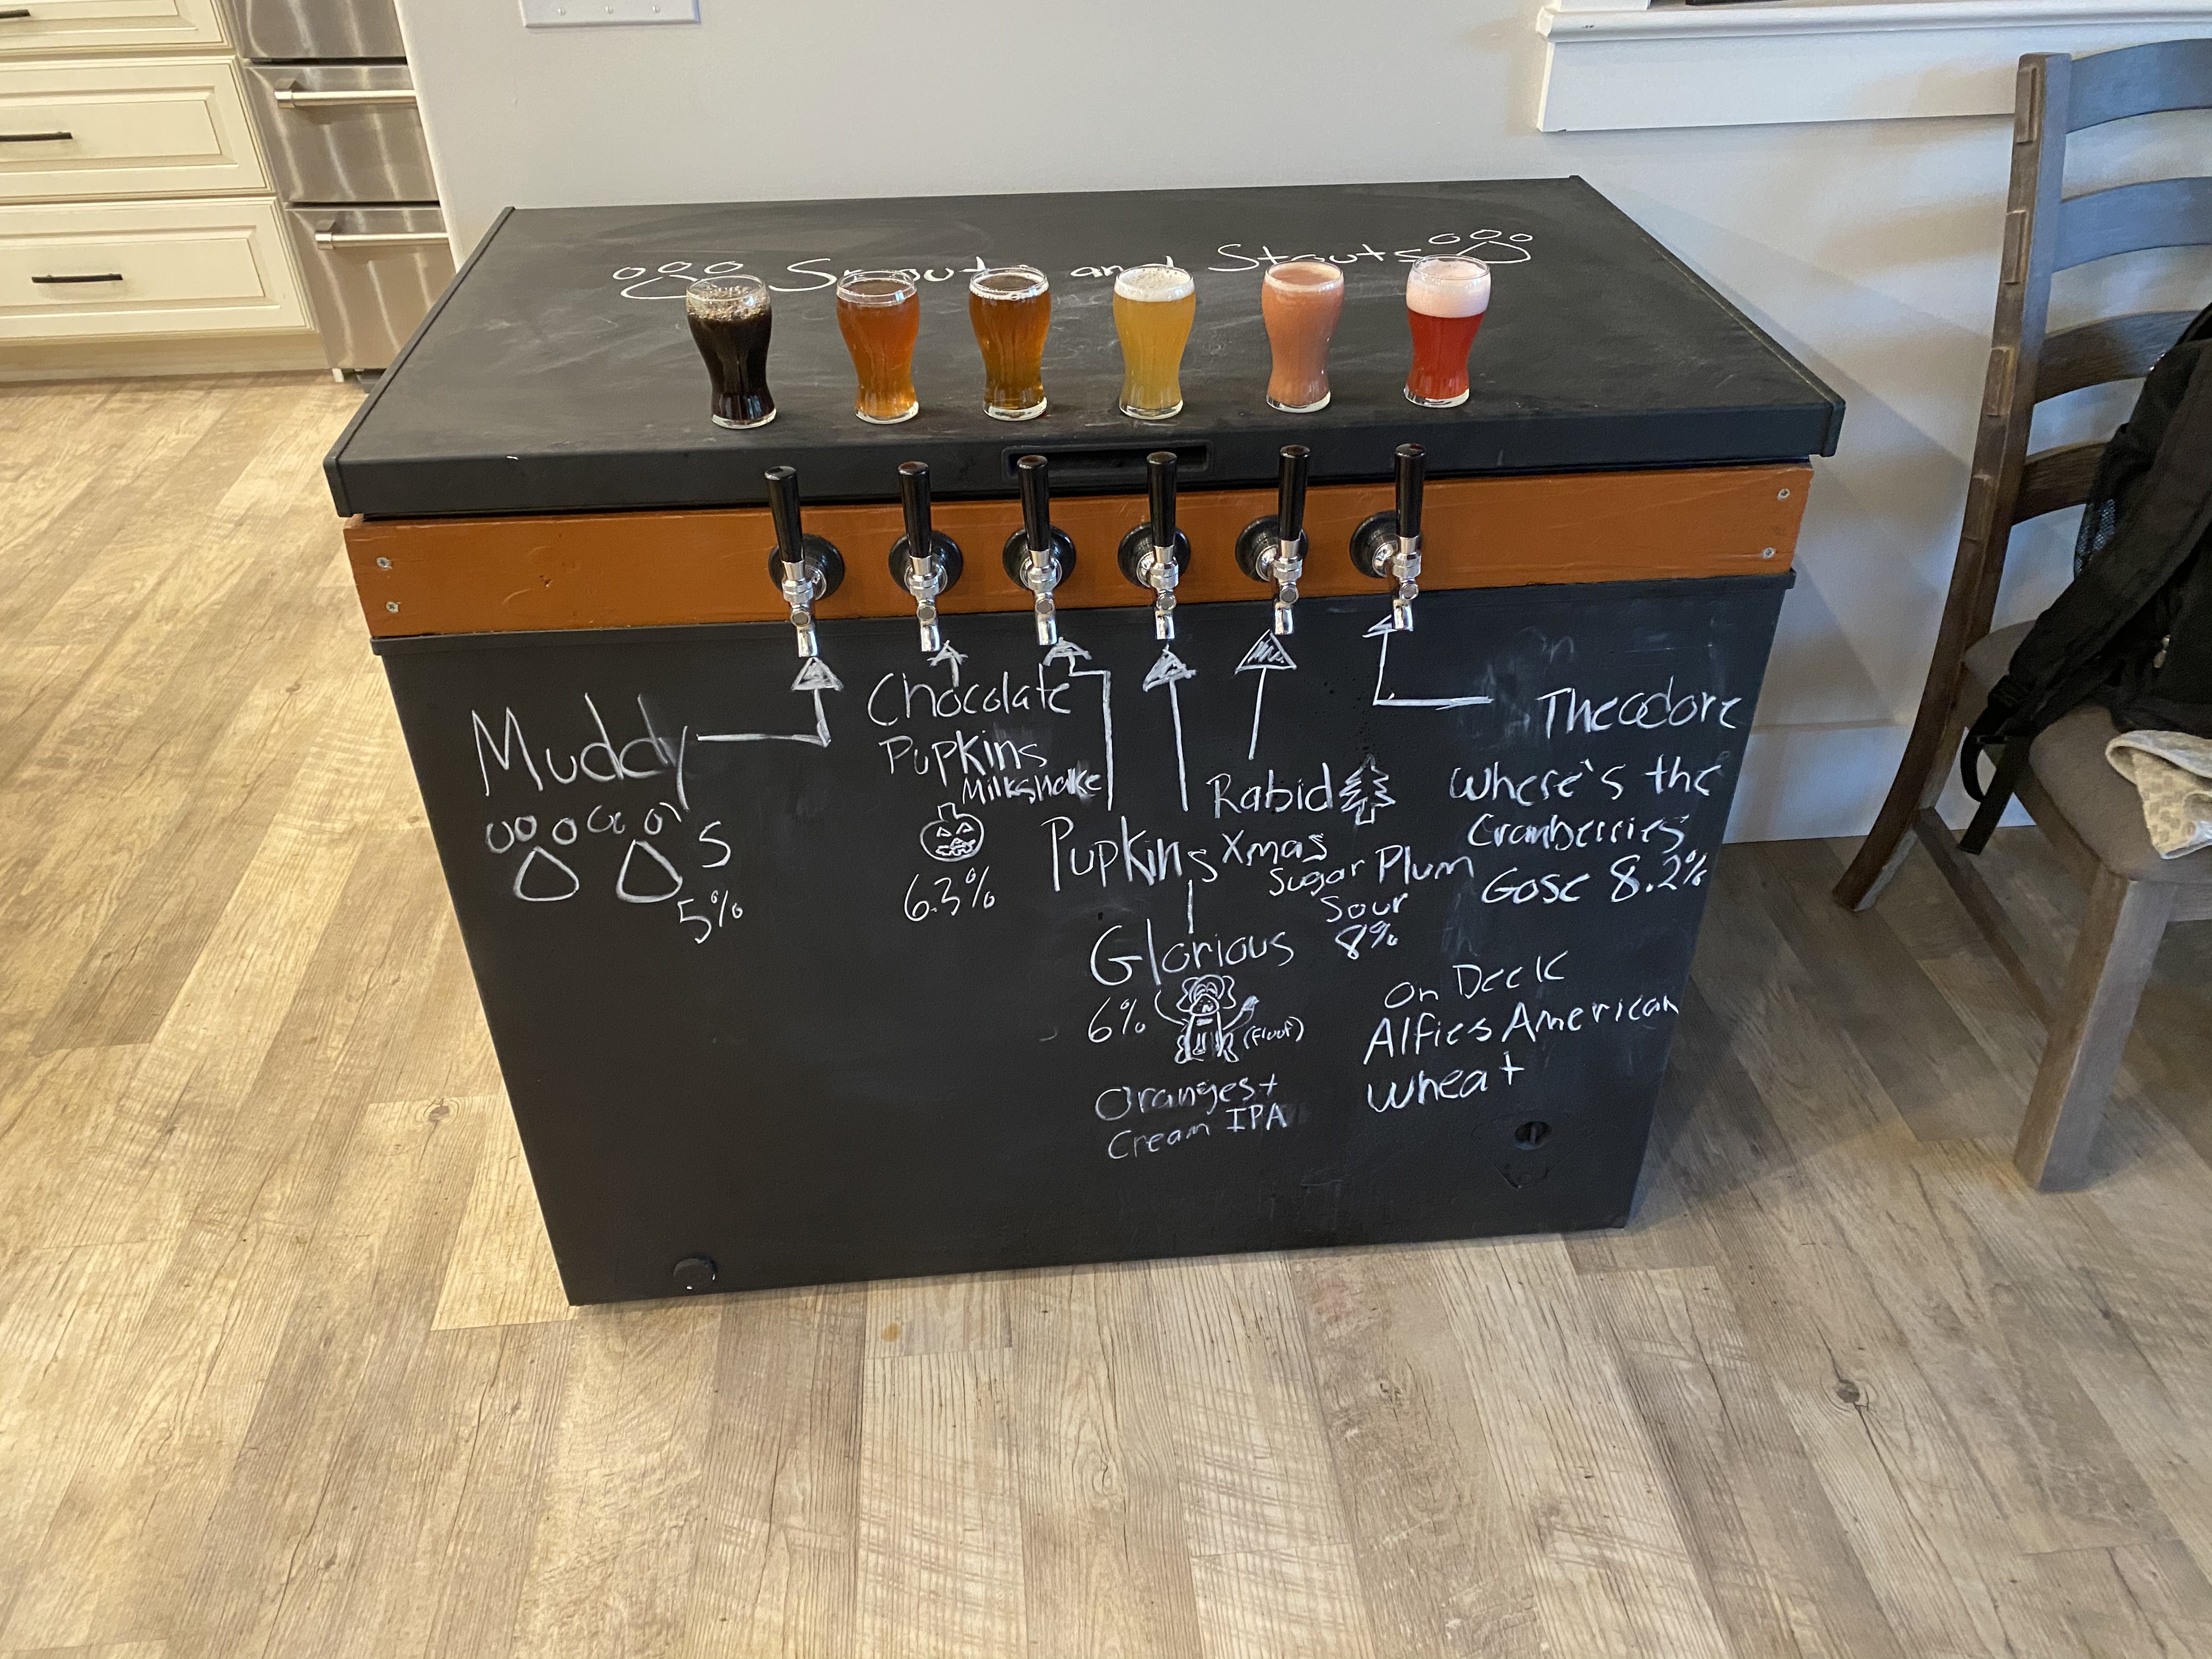 Snouts and Stouts
Muddy
S
5%
Chocolate
Pupkins
Milkshake
6.3%
Pupkins
Glorious
6%
(Floof)
Oranges +
Cream IPA
Rabid
Xmas
Sugar Plum
Sour
8%
Theodore
Where's the
Cranberries
Gose 8.2%
On Deck
Alfies American
Wheat